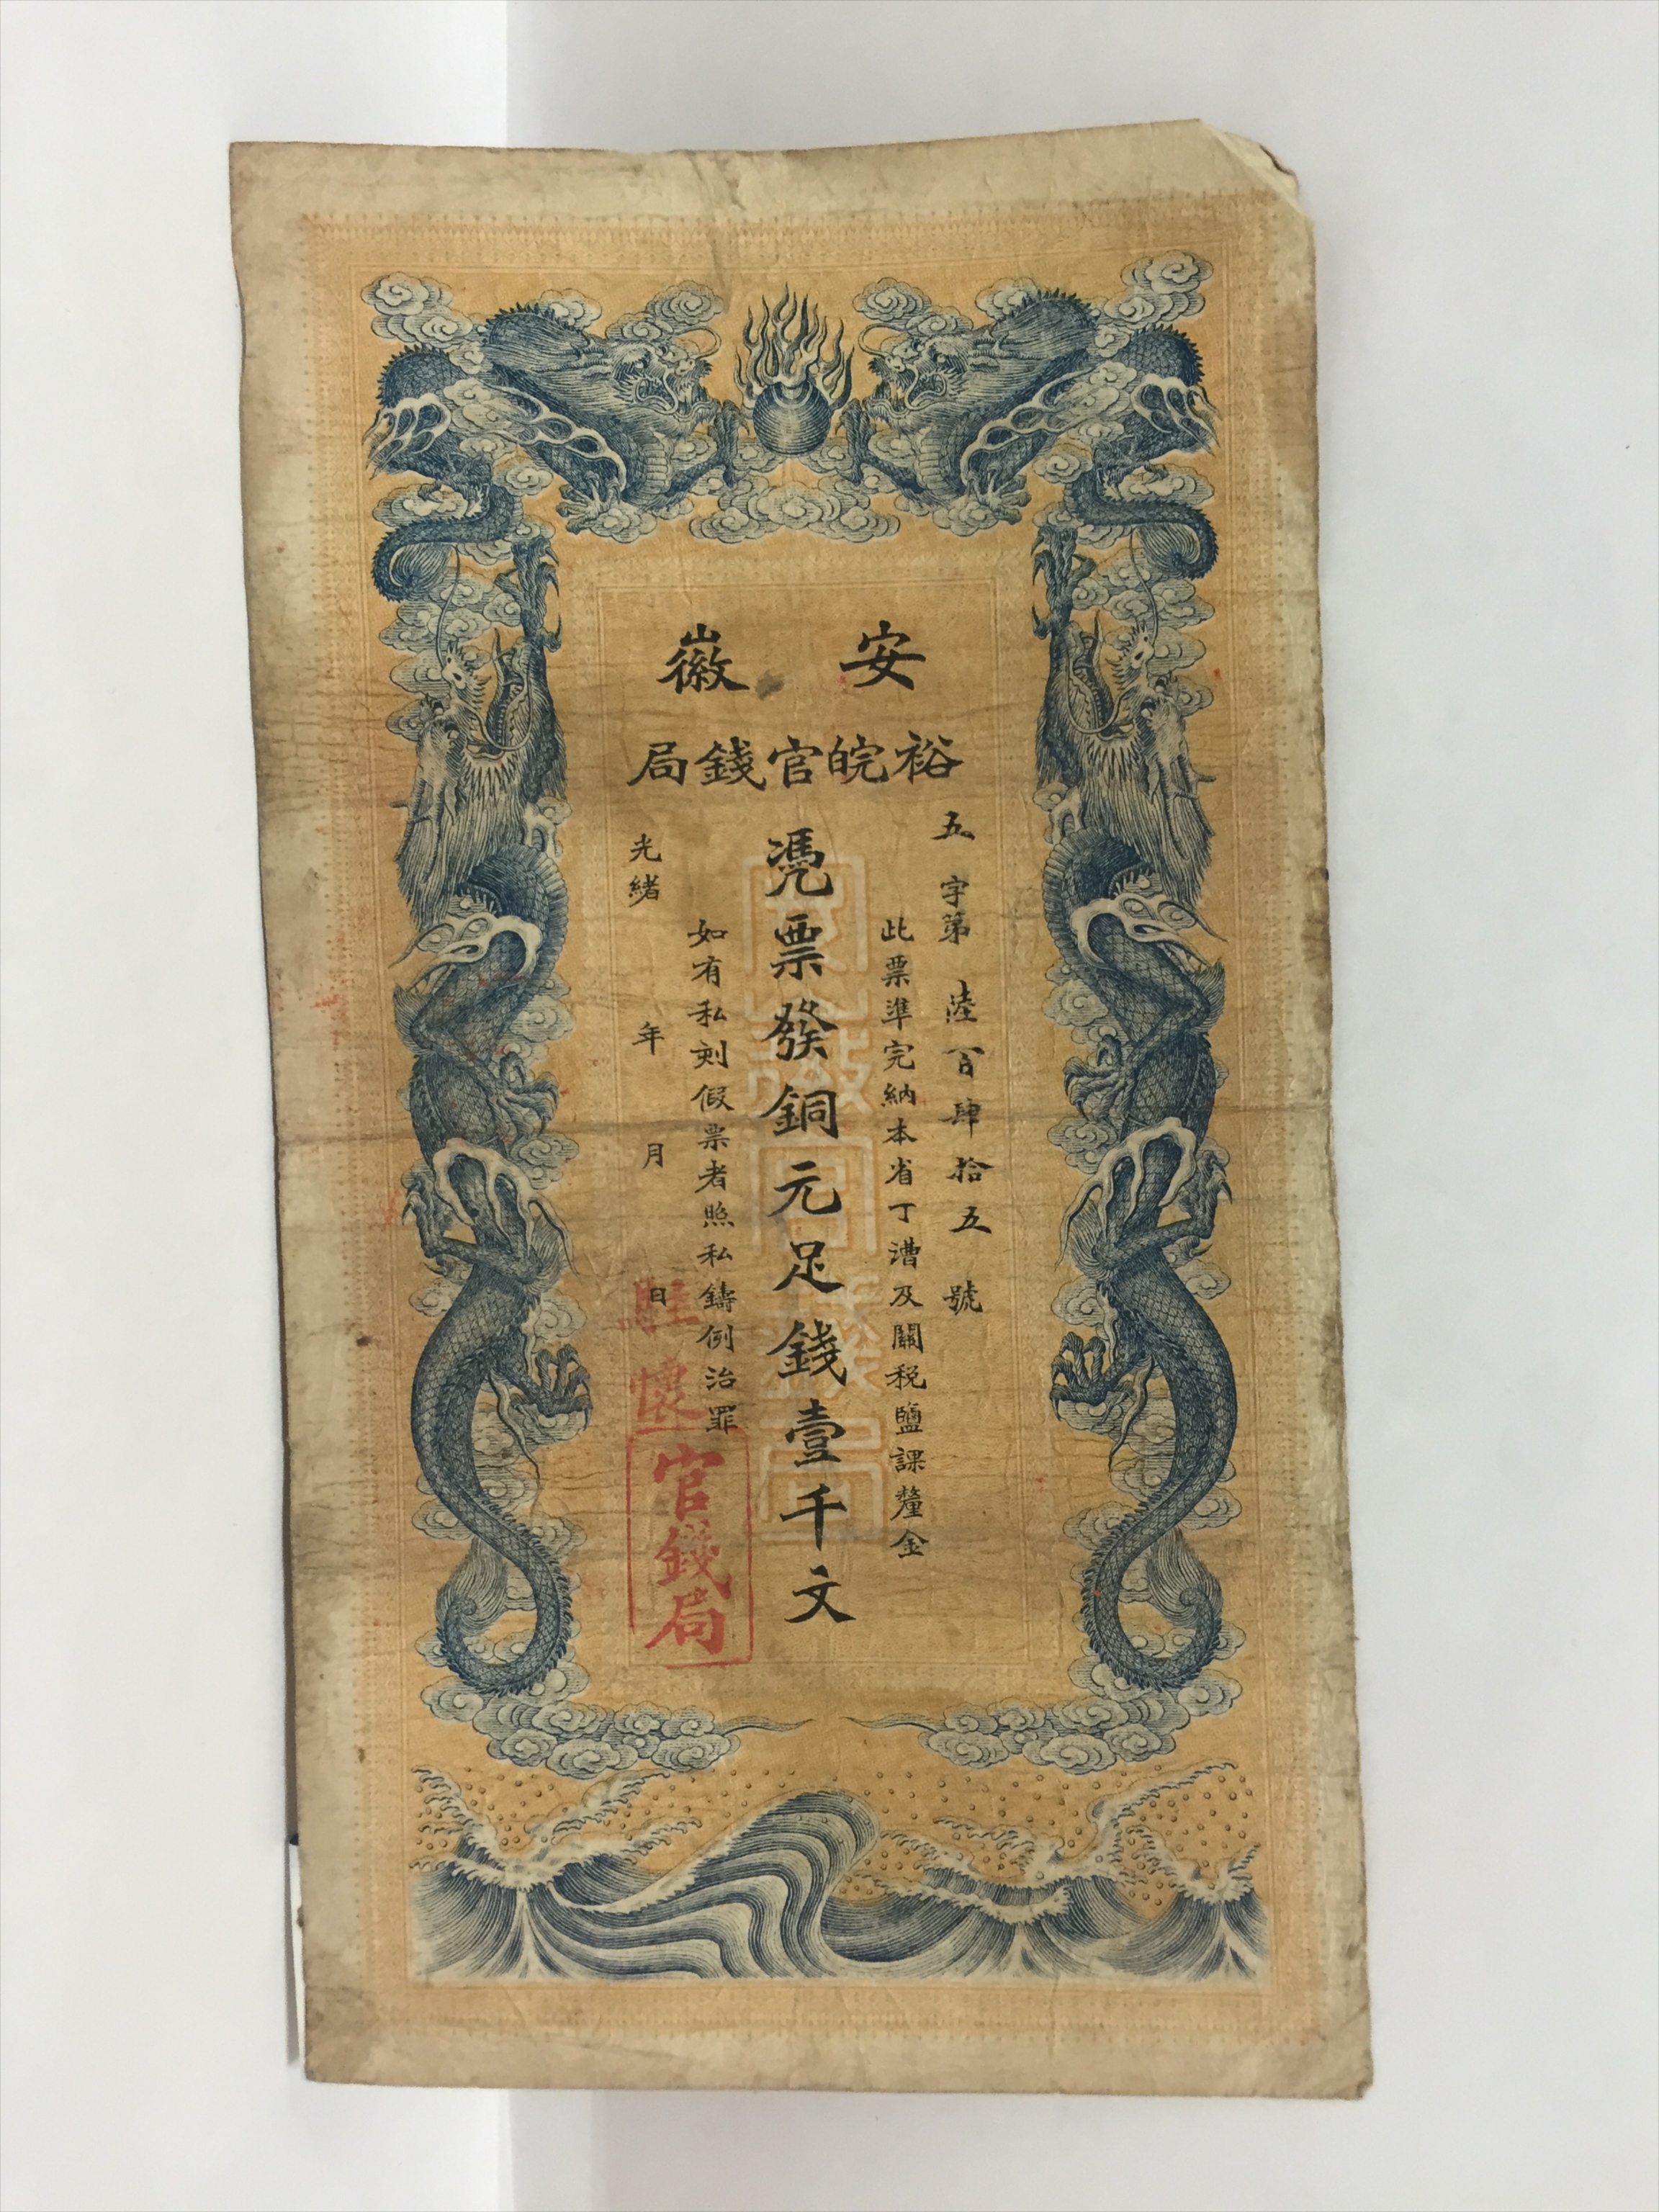 安徽
裕皖官錢局
五字第陸百肆拾五號
此票準完納本省丁漕及關稅鹽課釐金
憑票發銅元足錢壹千文
如有私刻假票者照私鑄例治罪
光緒年月日
官錢局